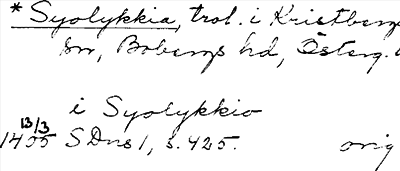 * Syolykkia, trol. i Kristberg
sn, Bobergs hd, Österg.
i Syolykkio
13/3
1405 SDns 1, s. 425. orig